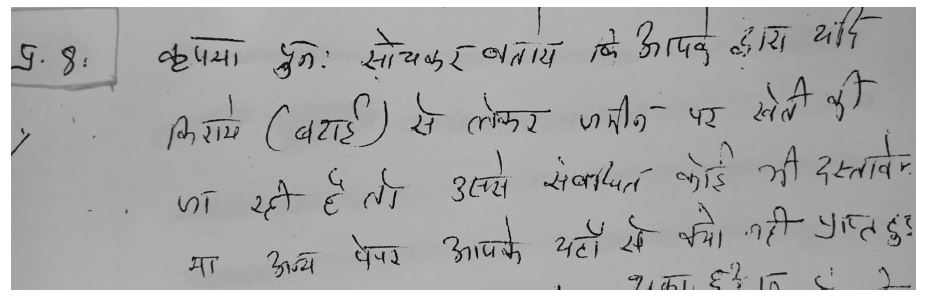 प्र. 8. कृपया पुनः सोचकर बताये कि आपके द्वारा यदि
किराये (बटाई) से लेकर जमीन पर खेती की
जा रही है तो उससे संबंधित कोई भी दस्तावेज
या अन्य पेपर आपके यहाँ से क्यो नही प्राप्त हुए